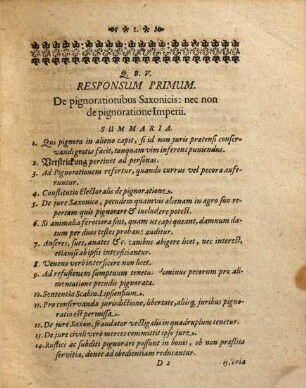 I.
Q. B. V.
RESPONSUM PRIMUM.
De pignorationibus Saxonicis: nec non
de pignoratione Imperii.
SUMMARIA.
1. Qui pignora in alieno capit, si id non juris prætensi conser-
vandi gratia facit, tanquam vim inferens puniendus.
2. Verstrickung pertinet ad personas.
3. Ad Pignorationem refertur, quando currus vel pecora aufe-
runtur.
4. Constitutio Electoralis de pignoratione.
5. De jure Saxonico, pecudem quamvis alienam in agro suo re-
pertam quis pignorare & includere potest.
6. Si animalia ferociora sint, quam ut capi queant, damnum da-
tum per duos testes probans auditur.
7. Anseres, sues, anates &c. canibus abigere licet, nec interest,
etiamsi ab ipsis interficiantur.
8. Veneno verò interficere non licet.
9. Ad refusionem sumptuum tenetur Dominus pecorum pro ali-
mentatione pecudis pignorata.
10. Sententia Scabin. Lipsiensium.
11. Pro conservanda jurisdictione, libertate, aliisq; juribus pigno-
ratio est permissa.
12. De jure Saxon. fraudator vectigalis in quadruplum tenetur.
13. De jure civili verò merces committit ipso jure.
14. Rustici ac subditi pignorari possunt in bonis, ob non præstita
servitia, donec ad obedientiam reducantur.
D 2
15. cria